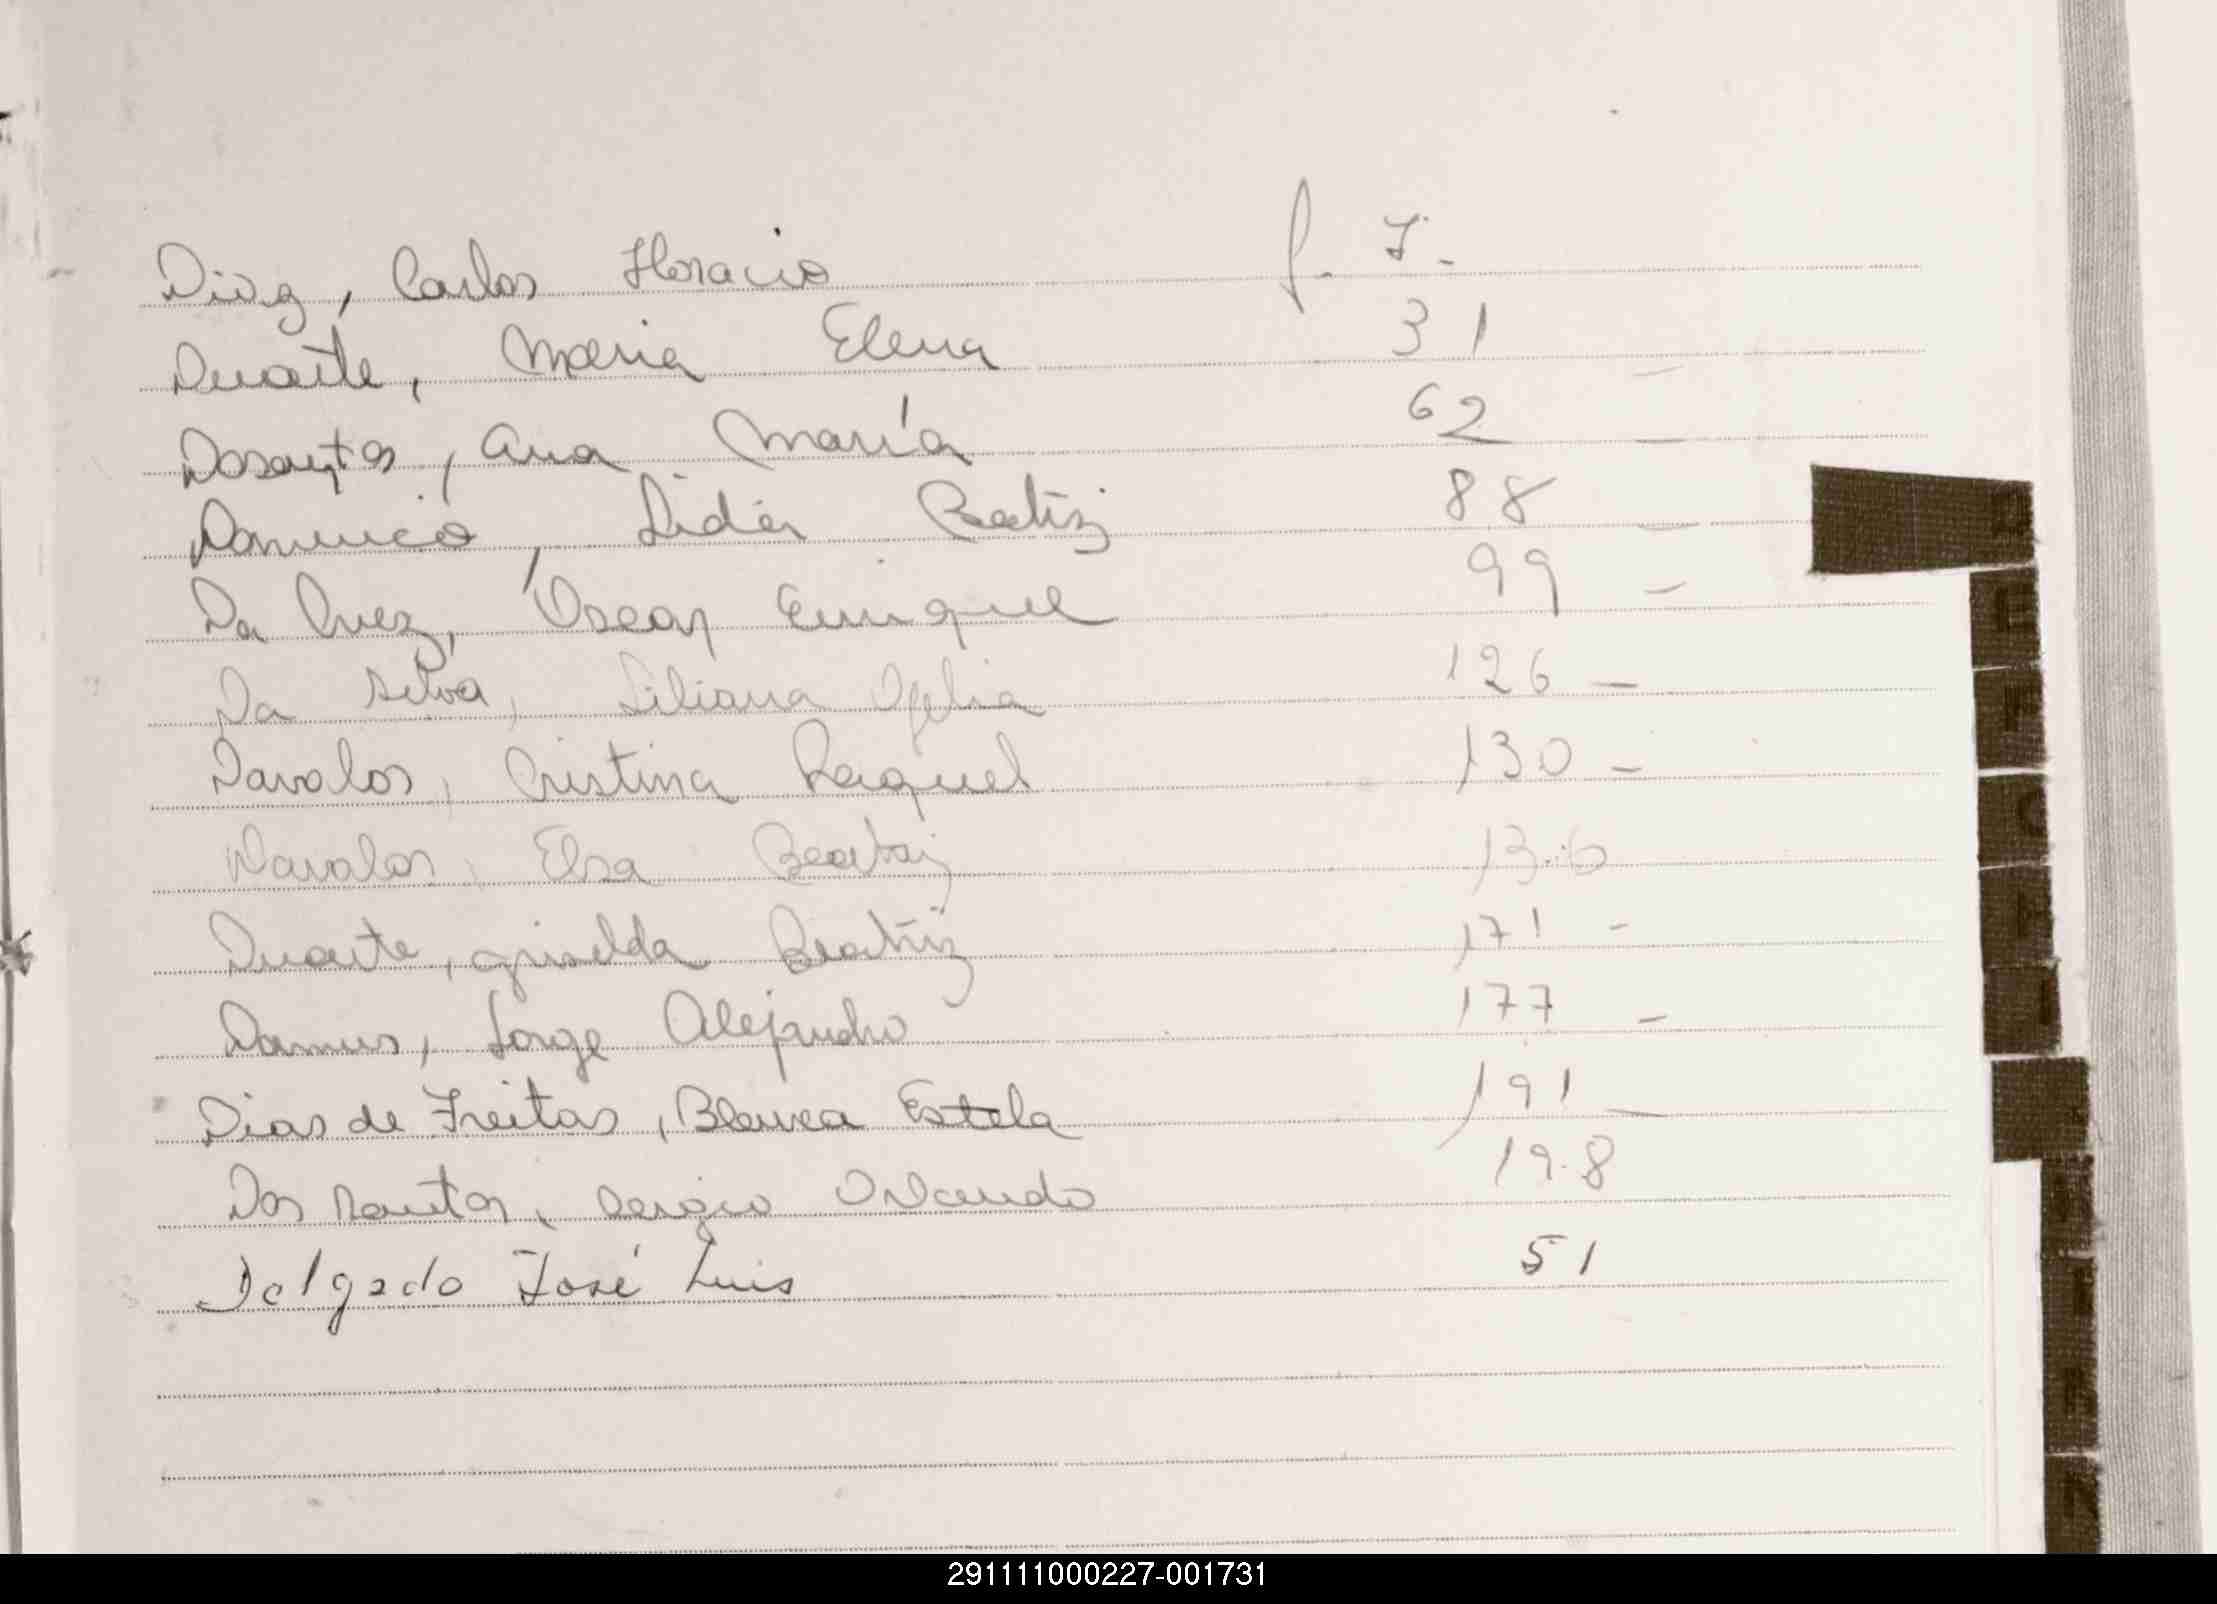 Diaz, Carlos Horacio f. 7.
Duarte, Maria Elena 31
Dosantos, Ana María 62 -
Lidia Beatriz 88 -
Da Oscar Enrique 99 -
Da Silva, Liliana Ofelia 126 -
Davalos, Cristina Raquel 130 -
Davalos, Elsa Beatriz 13
Duarte, Griselda Beatriz 171 -
Damus, Jorge Alejandro 177 -
Dias de Freitas, Blanca Estela 191 -
Dos Santos, Sergio Orlando 198
Delgado José Luis 51
D
E
F
G
291111000227-001731